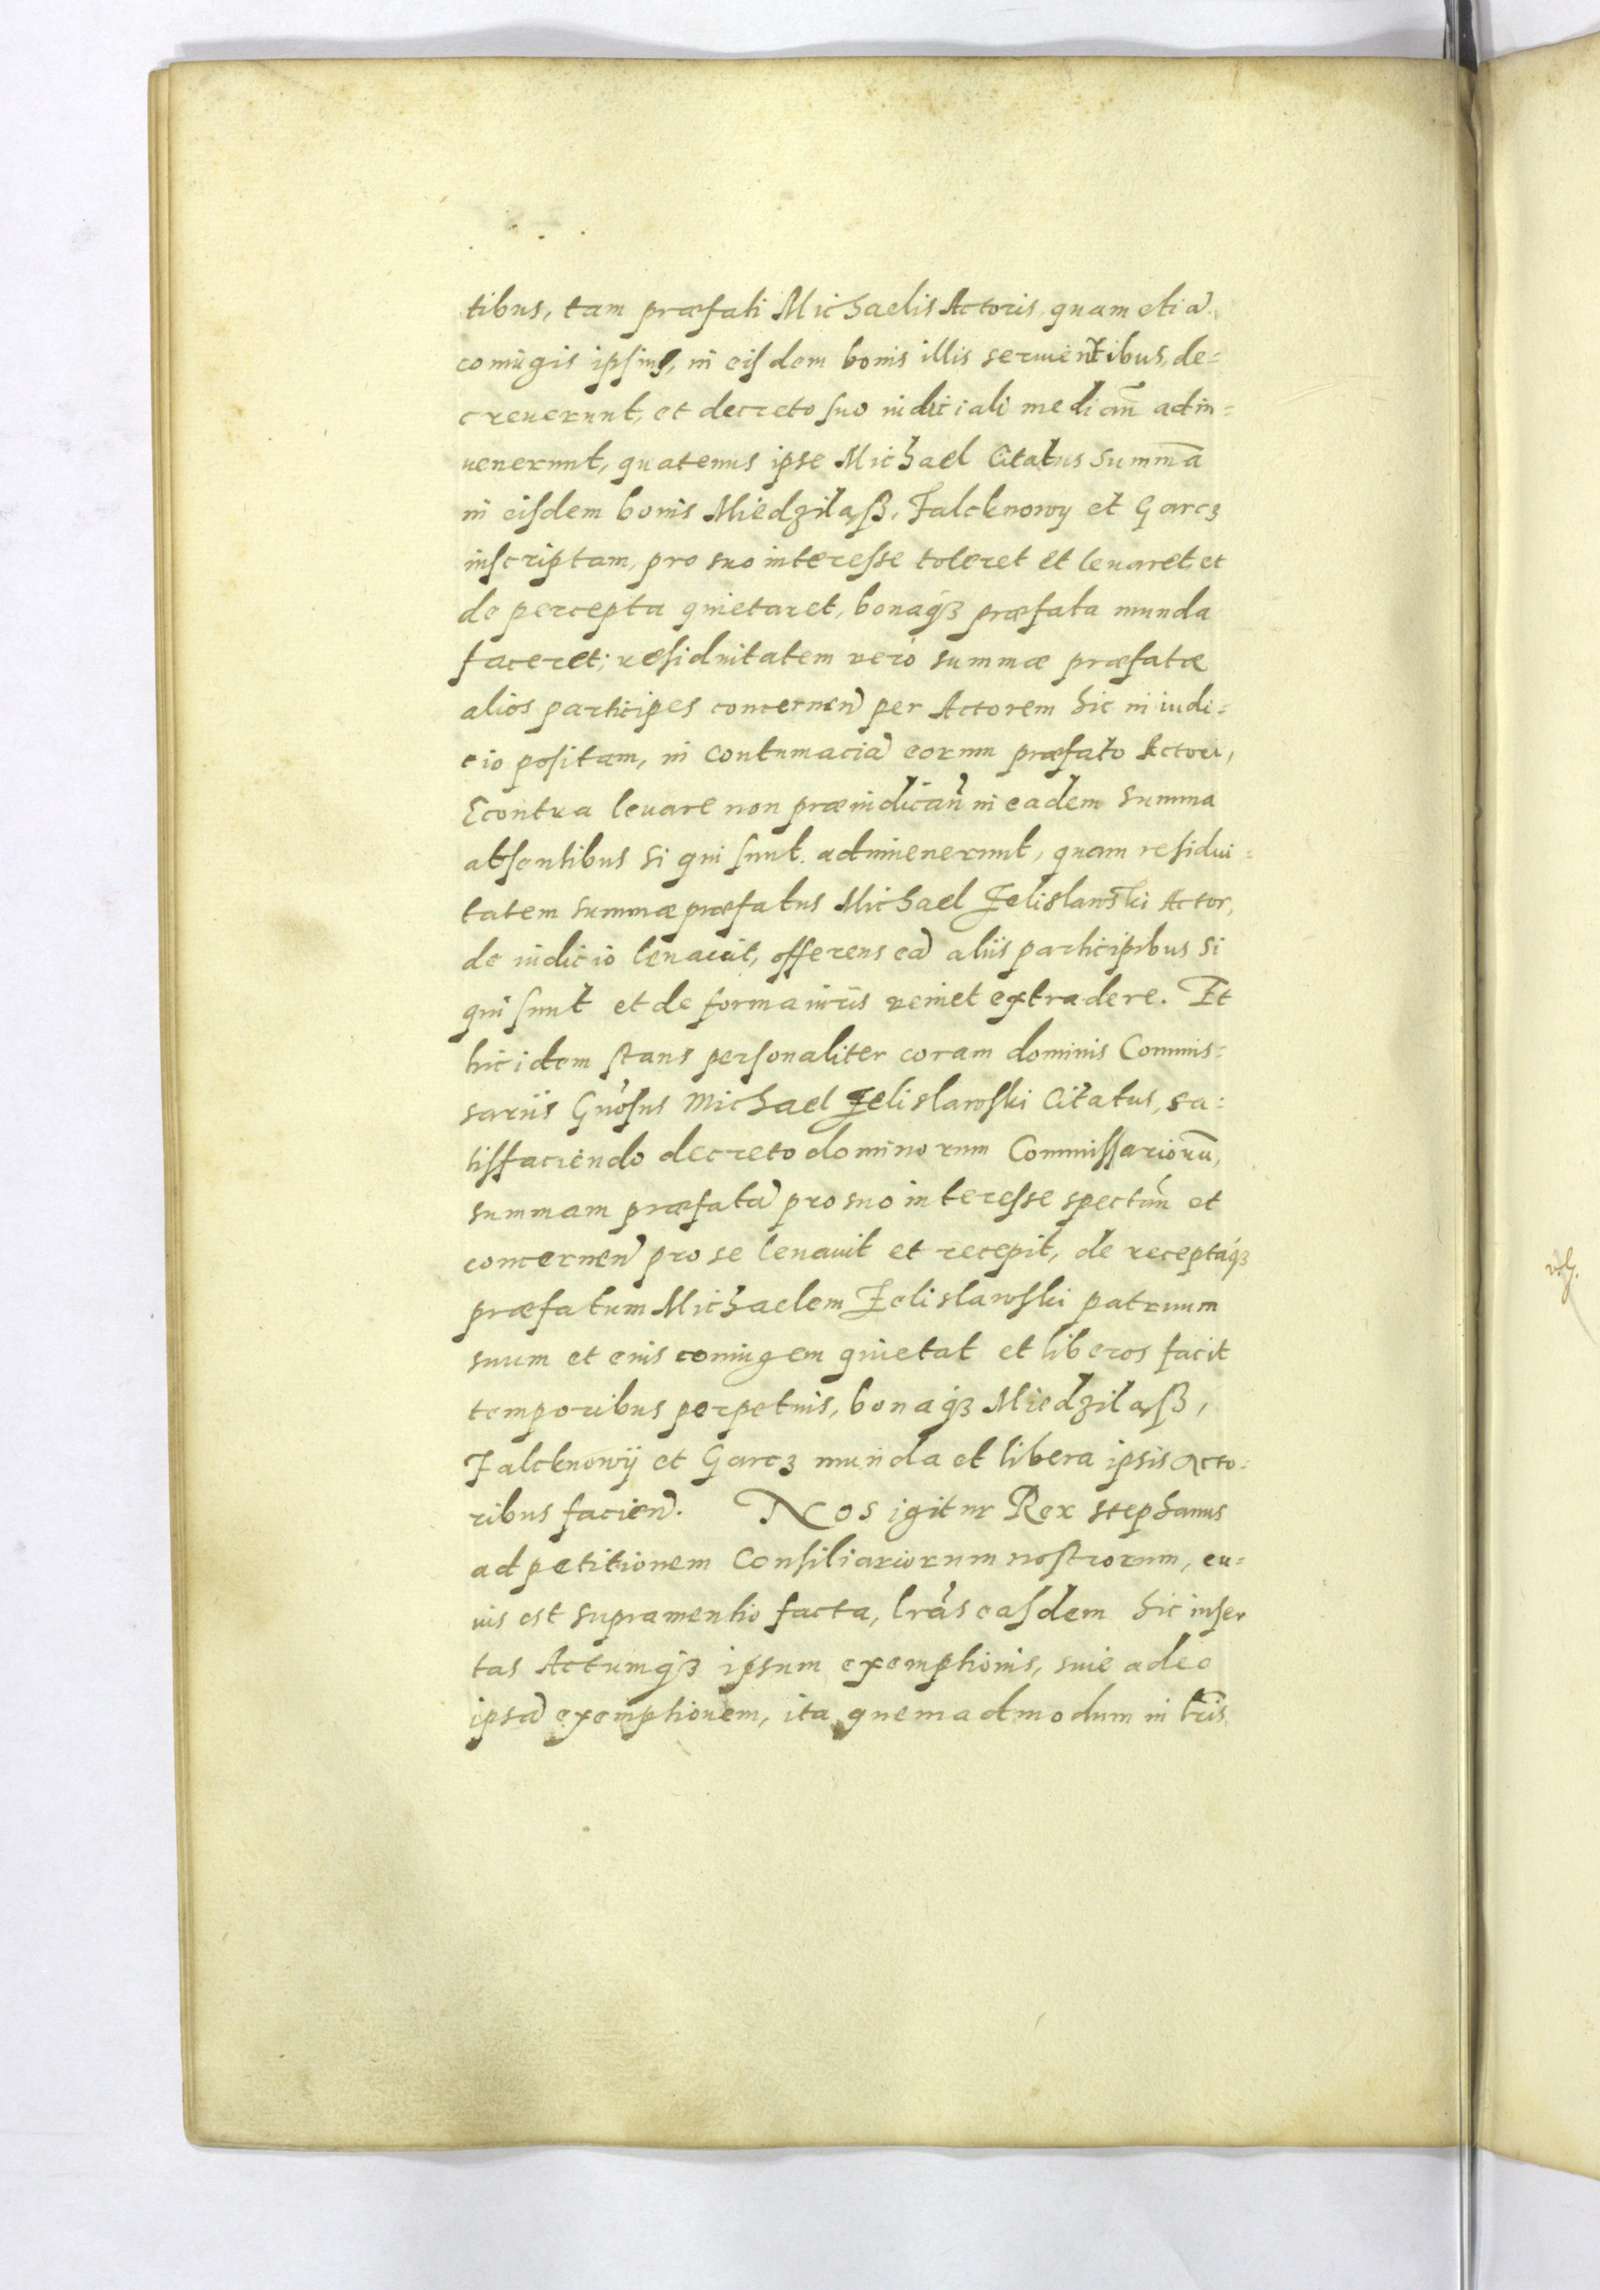 tibus, tam præfati Michaelis Actoris, quam etiã
coniugis ipsius, in eisdem bonis illis seruientibus, de=
creuerunt, et decreto suo iudiciali mediañ adin=
uenerunt, quatenus ipse Michael Citatus Summã
in eisdem bonis Miedzilasß, Falcknowy et Garcz
inscriptam, pro suo interesse toleret et leuaret, et
de percepta quietaret, bonaqз præfata munda
faceret; residuitatem verò summæ præfatæ
alios participes concerneñ per Actorem hic in iudi=
cio positam, in contumaciã eorum præfato Actori,
Econtra leuare non præiudicañ in eadem Summa
absentibus si qui sunt adinuenerunt, quam residui=
tatem summæ præfatus Michael Zelislawski Actor,
de iudicio leuauit, offerens eã aliis participibus si
qui sunt et de forma iuris veniet extradere. Et
hic idem stans personaliter coram dominis Commis=
sariis Gñosus Michael Zelislawski Citatus, sa=
tisfaciendo decreto dominorum Commissariorũ,
summam præfatã pro suo interesse spectañ et
concerneñ pro se leuauit et recepit, de receptaqз
præfatum Michaelem Zelislawski patruum
suum et eius coniugem quietat et liberos facit
temporibus perpetuis, bonaqз Miedzilasß,
Falcknowij et Garcz munda et libera ipsis Acto=
ribus facieñ. Nos igitur Rex Stephanus
ad petitionem Consiliariorum nostrorum, cu=
ius est supra mentio facta, lrãs easdem hic inser
tas Actumqз ipsum exemptionis, siue adeo
ipsã exemptionem, ita quemadmodum in lr̃is